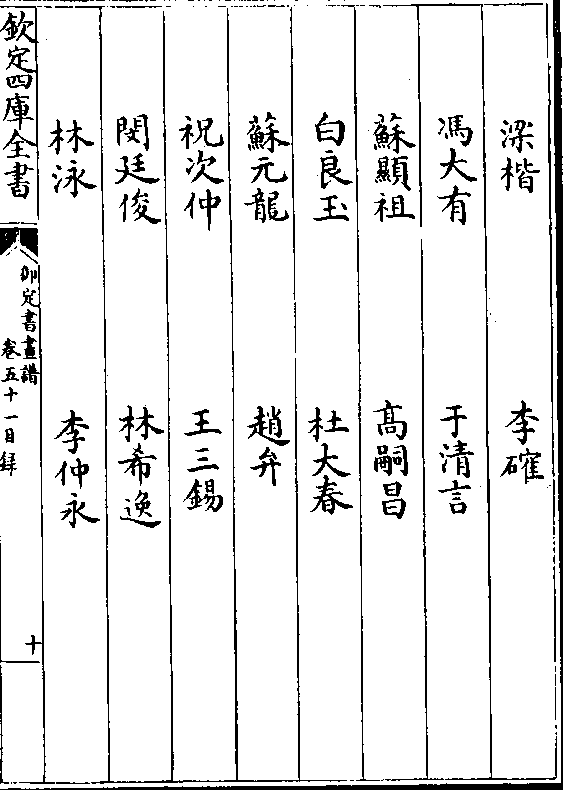 梁楷 李確
馮大有 于清言
蘇顯祖 髙嗣昌
白良玉 杜大春
蘇元龍 趙弁
祝次仲 王三錫
閔廷俊 林希逸
林泳 李仲永
欽定四庫全書
御定書畫譜
卷五十一目録
十